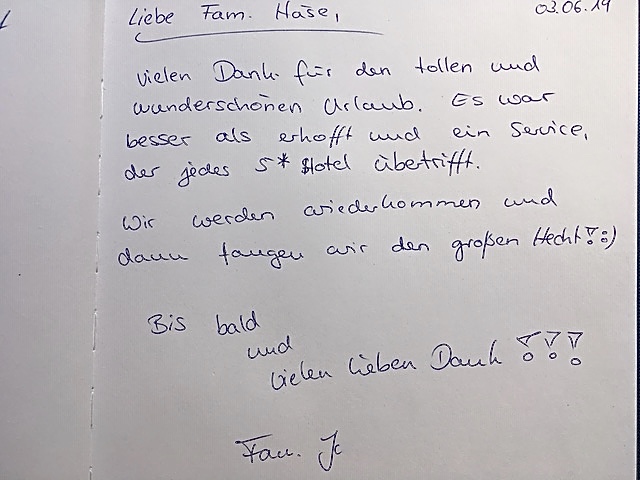 Liebe Fam. Hase,
03.06.19
vielen Dank für den tollen und
wunderschönen Urlaub. Es war
besser als erhofft und ein Service,
der jedes 5* Hotel übertrifft.
Wir werden wiederkommen und
dann fangen wir den großen Hecht! :)
Bis bald
und
vielen lieben Dank !!!
Fam.